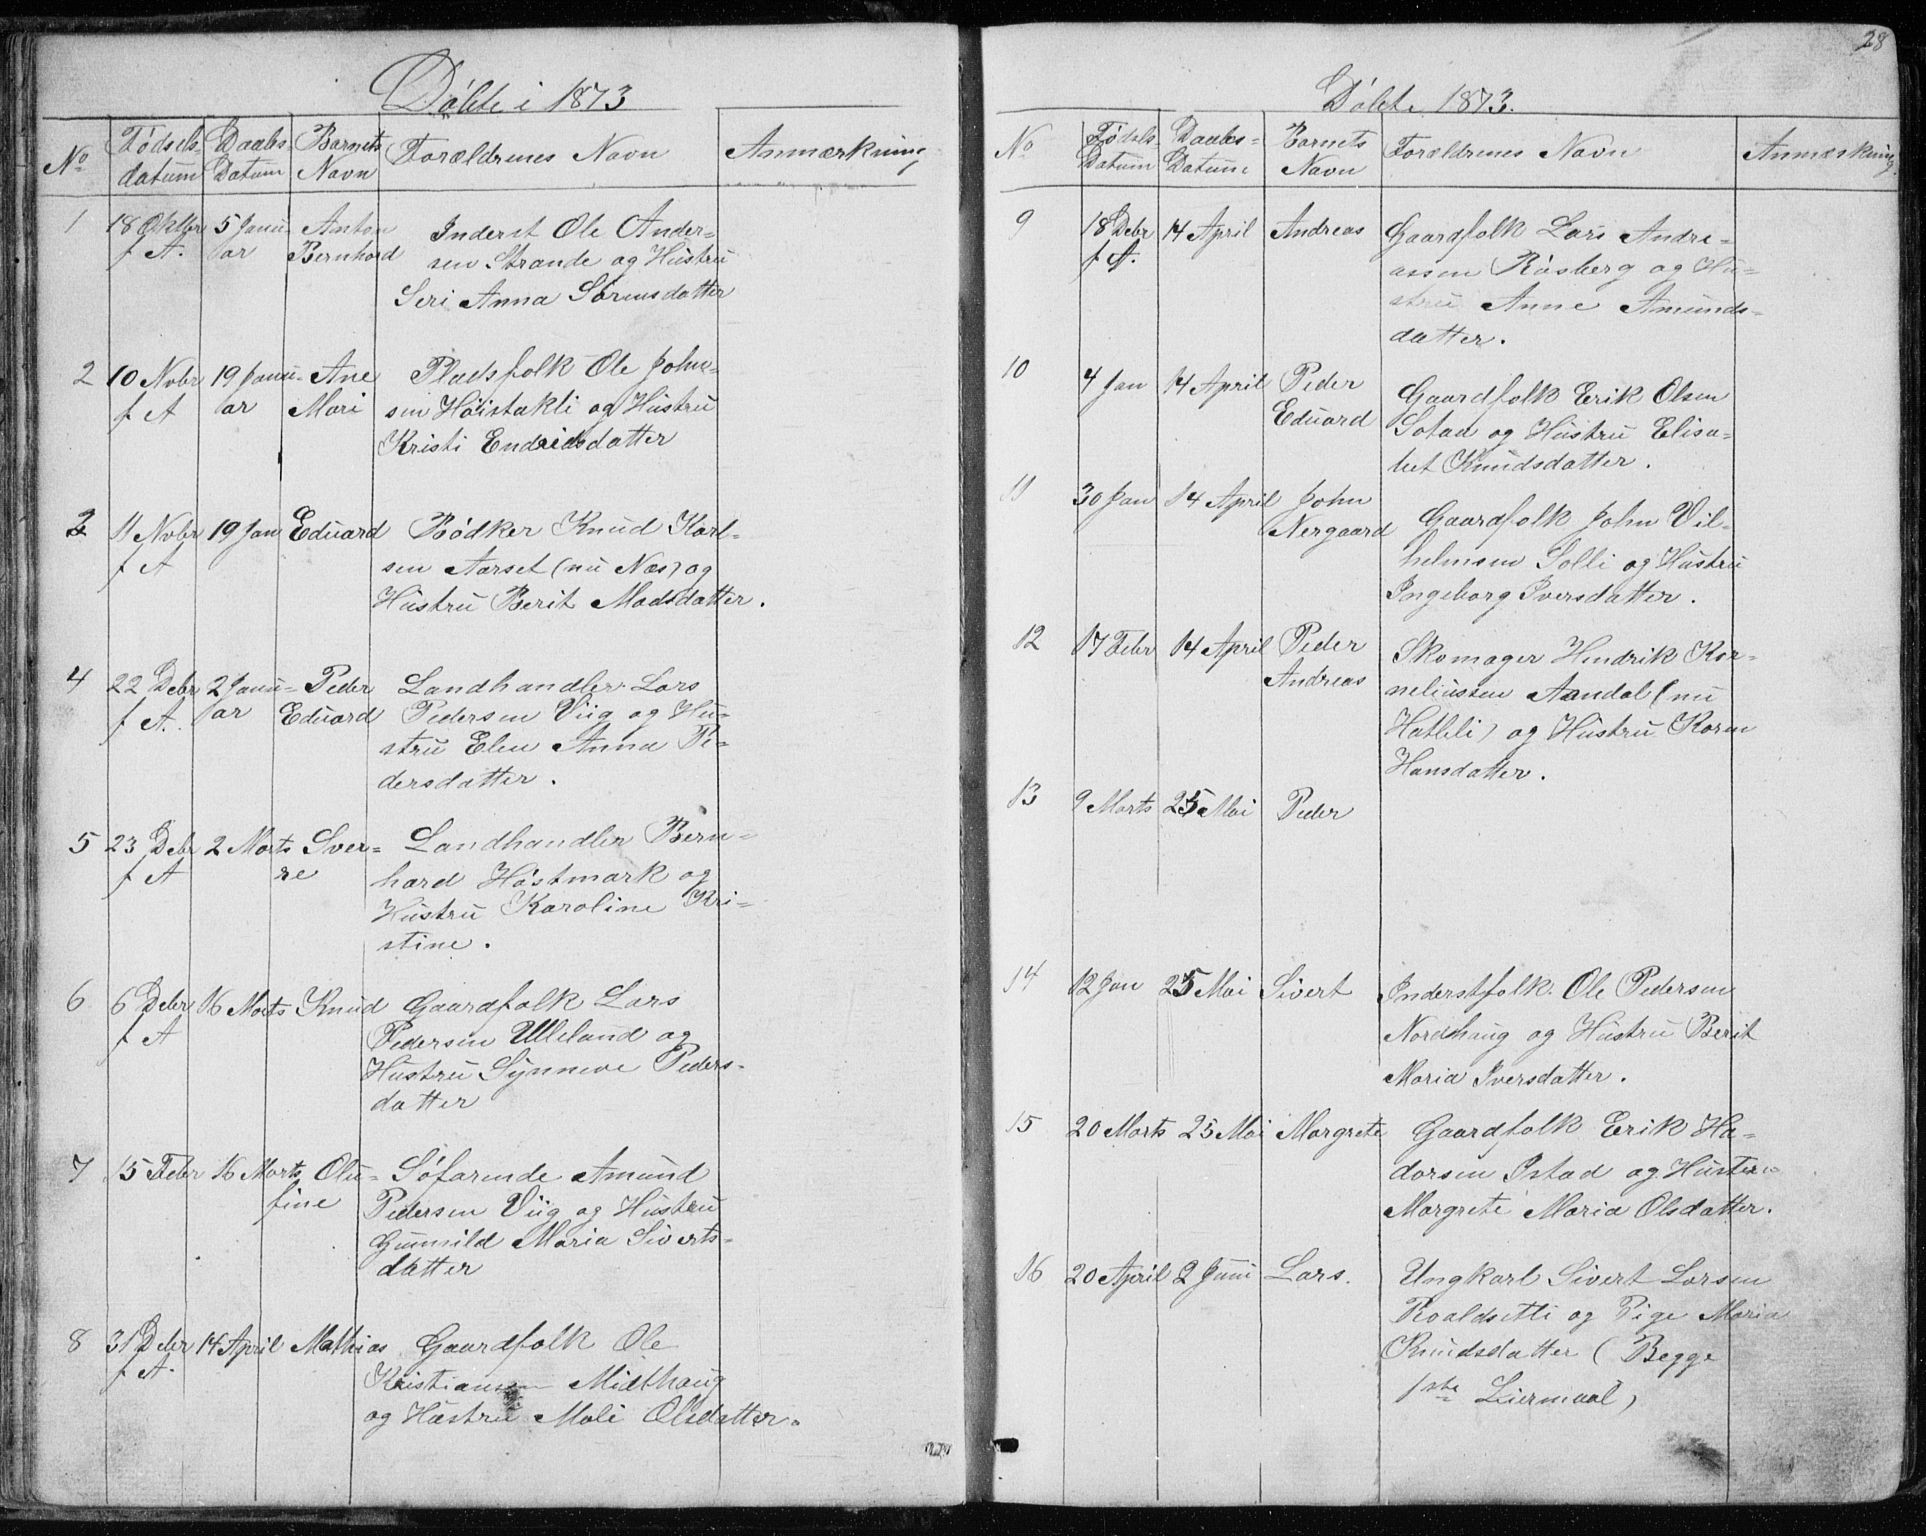 Døbte i 1873
No Fødsels- Daabs Barnets Forældrenes Navn Anmærkning
datum Datum Navn
1 18 Oktbr 5 Janu- Anton Inderst Ole Ander-
f A. ar Bernhard sen Strande og Hustru
Seri Anna Sørensdatter
2 10 Nvbr 19 Janu- Ane Pladsfolk Ole John-
f A ar Mari sen Höistakli og Hustru
Kristi Endridsdatter
3 11 Nvbr 19 Jan Eduard Bødker Knud Karl-
f A sen Aarset (nu Næs) og
Hustru Berit Madsdatter.
4 22 Debr 2 Janu- Peder Landhandler Lars
f A. ar Eduard Pedersen Viig og Hu-
stru Elen Anna Pe-
dersdatter.
5 23 Debr 2 Marts Sver- Landhandler Bern-
f A re hard Høstmark og
Hustru Karoline Kri-
stine.
6 6 Debr 16 Marts Knud Gaardfolk Lars
f A Pedersen Ulleland og
Hustru Synneve Peders-
datter
7 15 Febr 16 Marts Olu- Søfarende Amund
fine Pedersen Viig og Hustru
Gunnild Maria Siverts-
datter
8 31 Debr 14 April Mathias Gaardfolk Ole
f A. Kristiansen Midthaug
og Hustru Mali Olsdatter.
28
Døbte 1873.
No Fødsels Daabs- Barnets Forældrenes Navn Anmærkning
Datum Datum Navn
9 18 Debr 14 April Andreas Gaardfolk Lars Andre-
f A. assen Røsberg og Hu-
stru Anne Amunds-
datter.
10 4 Jan 14 April Peder Gaardfolk Erik Olsen
Eduard Solad og Hustru Elisa-
bet Knudsdatter.
11 30 Jan 14 April John Gaardfolk John Vil-
Nergaard helmsen Solli og Hustru
Ingeborg Iversdatter.
12 17 Febr 14 April Peder Skomager Hendrik Kor-
Andreas neliussen Aandal (nu
Hatleli) og Hustru Karen
Hansdatter.
13 9 Marts 25 Mai Peder
14 12 Jan 25 Mai Sivert Inderstfolk Ole Pedersen
Nordhaug og Hustru Berit
Maria Iversdatter.
15 20 Marts 25 Mai Margrete Gaardfolk Erik Ha-
dorsen Istad og Hustru
Margrete Maria Olsdatter.
16 20 April 2 Juni Lars. Ungkarl Sivert Larsen
Roaldsetli og Pige Maria
Knudsdatter (Begge
1ste Leiermaal)